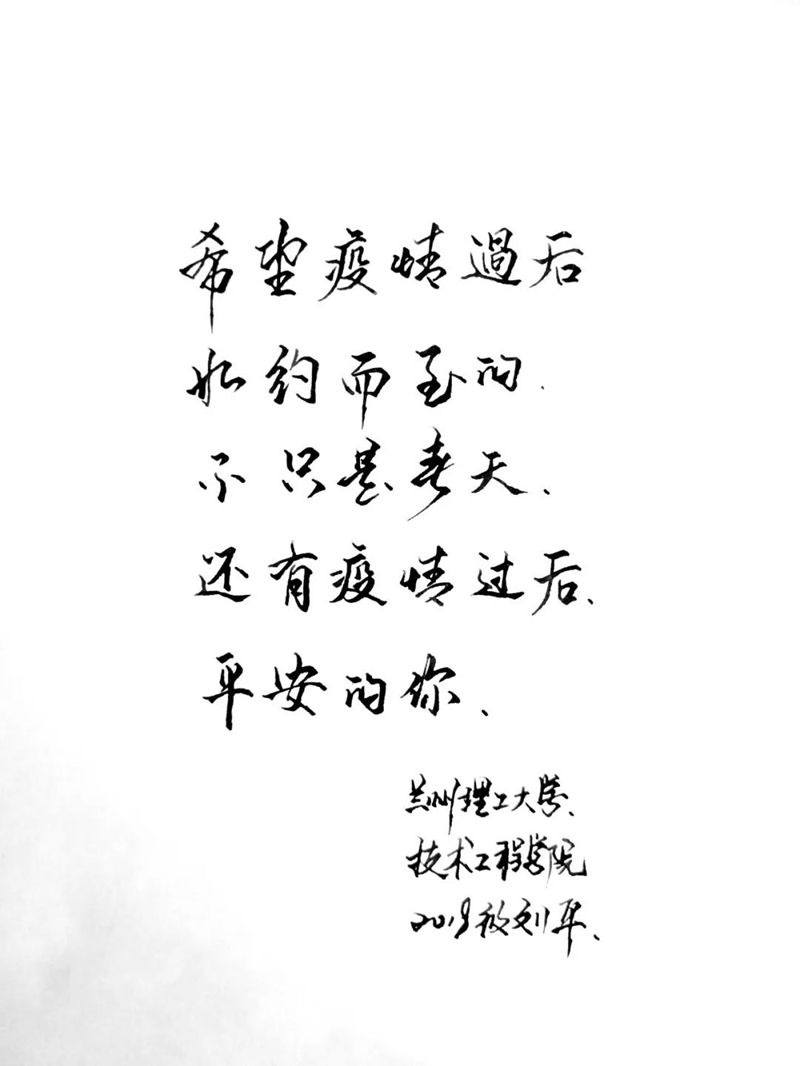 希望疫情過后
如约而至的.
不只是春天、
还有疫情过后、
平安的你、
兰州理工大学、
技术工程学院
2019级刘平、